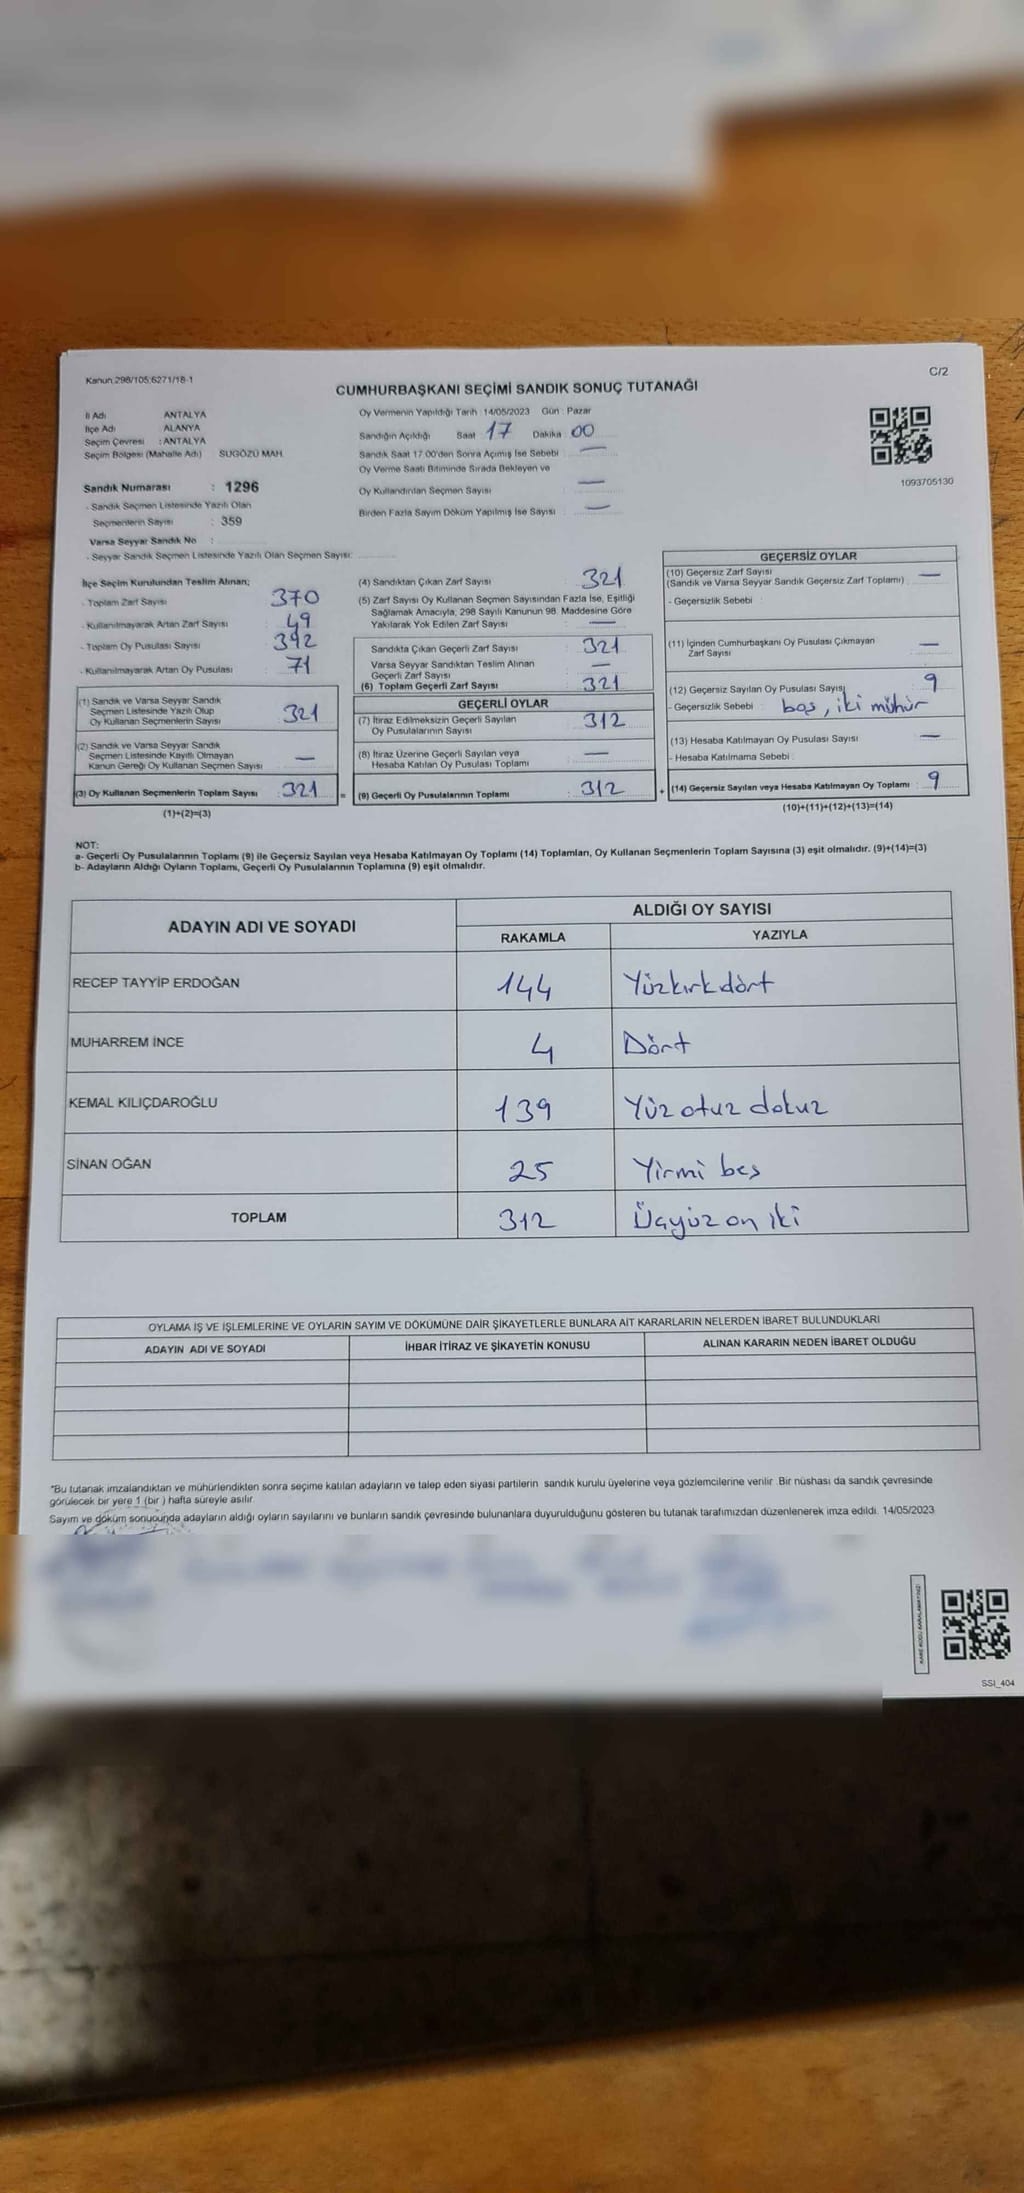 Kanun 298/105,6271/18-1
C/2
CUMHURBAŞKANI SEÇİMİ SANDIK SONUÇ TUTANAĞI
İl Adı ANTALYA
İlçe Adı ALANYA
Seçim Çevresi : ANTALYA
Seçim Bölgesi (Mahalle Adı) SUGÖZÜ MAH.
Sandık Numarası : 1296
- Sandık Seçmen Listesinde Yazılı Olan
Seçmenlerin Sayısı : 359
Varsa Seyyar Sandık No :
- Seyyar Sandık Seçmen Listesinde Yazılı Olan Seçmen Sayısı:
Oy Vermenin Yapıldığı Tarih :14/05/2023 Gün : Pazar
Sandığın Açıldığı Saat 17 Dakika 00
Sandık Saat 17:00'den Sonra Açımış İse Sebebi : —
Oy Verme Saati Bitiminde Sırada Bekleyen ve
Oy Kullandırılan Seçmen Sayısı : —
Birden Fazla Sayım Döküm Yapılmış İse Sayısı : —
1093705130
İlçe Seçim Kurulundan Teslim Alınan;
- Toplam Zarf Sayısı : 370
- Kullanılmayarak Artan Zarf Sayısı : 49
- Toplam Oy Pusulası Sayısı : 392
- Kullanılmayarak Artan Oy Pusulası : 71
(1) Sandık ve Varsa Seyyar Sandık
Seçmen Listesinde Yazılı Olup
Oy Kullanan Seçmenlerin Sayısı : 321
(2) Sandık ve Varsa Seyyar Sandık
Seçmen Listesinde Kayıtlı Olmayan
Kanun Gereği Oy Kullanan Seçmen Sayısı : —
(3) Oy Kullanan Seçmenlerin Toplam Sayısı : 321 =
(1)+(2)=(3)
(4) Sandıktan Çıkan Zarf Sayısı : 321
(5) Zarf Sayısı Oy Kullanan Seçmen Sayısından Fazla İse, Eşitliği
Sağlamak Amacıyla, 298 Sayılı Kanunun 98. Maddesine Göre
Yakılarak Yok Edilen Zarf Sayısı : —
Sandıkta Çıkan Geçerli Zarf Sayısı : 321
Varsa Seyyar Sandıktan Teslim Alınan
Geçerli Zarf Sayısı : —
(6) Toplam Geçerli Zarf Sayısı : 321
GEÇERLİ OYLAR
(7) İtiraz Edilmeksizin Geçerli Sayılan
Oy Pusulalarının Sayısı : 312
(8) İtiraz Üzerine Geçerli Sayılan veya
Hesaba Katılan Oy Pusulası Toplamı : —
(9) Geçerli Oy Pusulalarının Toplamı : 312 +
GEÇERSİZ OYLAR
(10) Geçersiz Zarf Sayısı
(Sandık ve Varsa Seyyar Sandık Geçersiz Zarf Toplamı) : —
- Geçersizlik Sebebi :
(11) İçinden Cumhurbaşkanı Oy Pusulası Çıkmayan
Zarf Sayısı : —
(12) Geçersiz Sayılan Oy Pusulası Sayısı : 9
- Geçersizlik Sebebi : boş, iki mühür
(13) Hesaba Katılmayan Oy Pusulası Sayısı : —
- Hesaba Katılmama Sebebi :
(14) Geçersiz Sayılan veya Hesaba Katılmayan Oy Toplamı : 9
(10)+(11)+(12)+(13)=(14)
NOT:
a- Geçerli Oy Pusulalarının Toplamı (9) ile Geçersiz Sayılan veya Hesaba Katılmayan Oy Toplamı (14) Toplamları, Oy Kullanan Seçmenlerin Toplam Sayısına (3) eşit olmalıdır. (9)+(14)=(3)
b- Adayların Aldığı Oyların Toplamı, Geçerli Oy Pusulalarının Toplamına (9) eşit olmalıdır.
ADAYIN ADI VE SOYADI
ALDIĞI OY SAYISI
RAKAMLA YAZIYLA
RECEP TAYYİP ERDOĞAN 144 Yüzkırkdört
MUHARREM İNCE 4 Dört
KEMAL KILIÇDAROĞLU 139 Yüz otuz dokuz
SİNAN OĞAN 25 Yirmi beş
TOPLAM 312 Üçyüz on iki
OYLAMA İŞ VE İŞLEMLERİNE VE OYLARIN SAYIM VE DÖKÜMÜNE DAİR ŞİKAYETLERLE BUNLARA AİT KARARLARIN NELERDEN İBARET BULUNDUKLARI
ADAYIN ADI VE SOYADI İHBAR İTİRAZ VE ŞİKAYETİN KONUSU ALINAN KARARIN NEDEN İBARET OLDUĞU
*Bu tutanak imzalandıktan ve mühürlendikten sonra seçime katılan adayların ve talep eden siyasi partilerin sandık kurulu üyelerine veya gözlemcilerine verilir. Bir nüshası da sandık çevresinde
görülecek bir yere 1 (bir ) hafta süreyle asılır.
Sayım ve döküm sonucunda adayların aldığı oyların sayılarını ve bunların sandık çevresinde bulunanlara duyurulduğunu gösteren bu tutanak tarafımızdan düzenlenerek imza edildi. 14/05/2023
KARE KODU KARALAMAYINIZ!
SSI_404